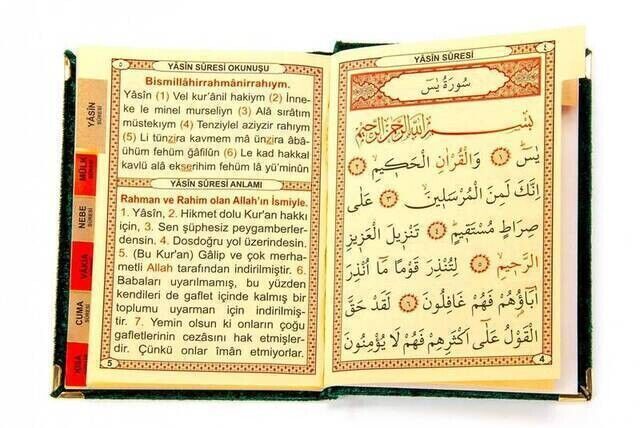 ٥
YÂSÎN SÛRESİ OKUNUŞU
Bismillâhirrahmânirrahıym.
Yâsîn (1) Vel kur'ânil hakiym (2) İnne-
ke le minel murseliyn (3) Alâ sırâtım
müstekıym (4) Tenziylel aziyzir rahıym
(5) Li tünzira kavmem mâ ünzira âbâ-
ühüm fehüm ğâfilûn (6) Le kad hakkal
kavlü alâ ekserihim fehüm lâ yü'minûn
YÂSİN SÛRESİ ANLAMI
Rahman ve Rahim olan Allah'ın İsmiyle.
1. Yâsîn, 2. Hikmet dolu Kur'an hakkı
için, 3. Sen şüphesiz peygamberler-
densin. 4. Dosdoğru yol üzerindesin.
5. (Bu Kur'an) Gâlip ve çok merha-
metli Allah tarafından indirilmiştir. 6.
Babaları uyarılmamış, bu yüzden
kendileri de gaflet içinde kalmış bir
toplumu uyarman için indirilmiş-
tir. 7. Yemin olsun ki onların çoğu
gafletlerinin cezasını hak etmişler-
dir. Çünkü onlar îmân etmiyorlar.
5
YÂSÎN SÛRESİ
MÜLK SÛRESİ
NEBE SÛRESİ
VAKIA
CUMA SÛRESİ
YÂSÎN SÛRESİ
٤
سُورَةُ يٰسٓ
بِسْمِ اللّٰهِ الرَّحْمٰنِ الرَّحِيمِ
يٰسٓ ﴿١﴾ وَالْقُرْاٰنِ الْحَكِيمِ ﴿٢﴾
اِنَّكَ لَمِنَ الْمُرْسَلِينَ ﴿٣﴾ عَلٰى
صِرَاطٍ مُسْتَقِيمٍ ﴿٤﴾ تَنْزِيلَ الْعَزِيزِ
الرَّحِيمِ ﴿٥﴾ لِتُنْذِرَ قَوْمًا مَٓا اُنْذِرَ
اٰبَٓاؤُهُمْ فَهُمْ غَافِلُونَ ﴿٦﴾ لَقَدْ حَقَّ
الْقَوْلُ عَلٰٓى اَكْثَرِهِمْ فَهُمْ لَا يُؤْمِنُونَ
4